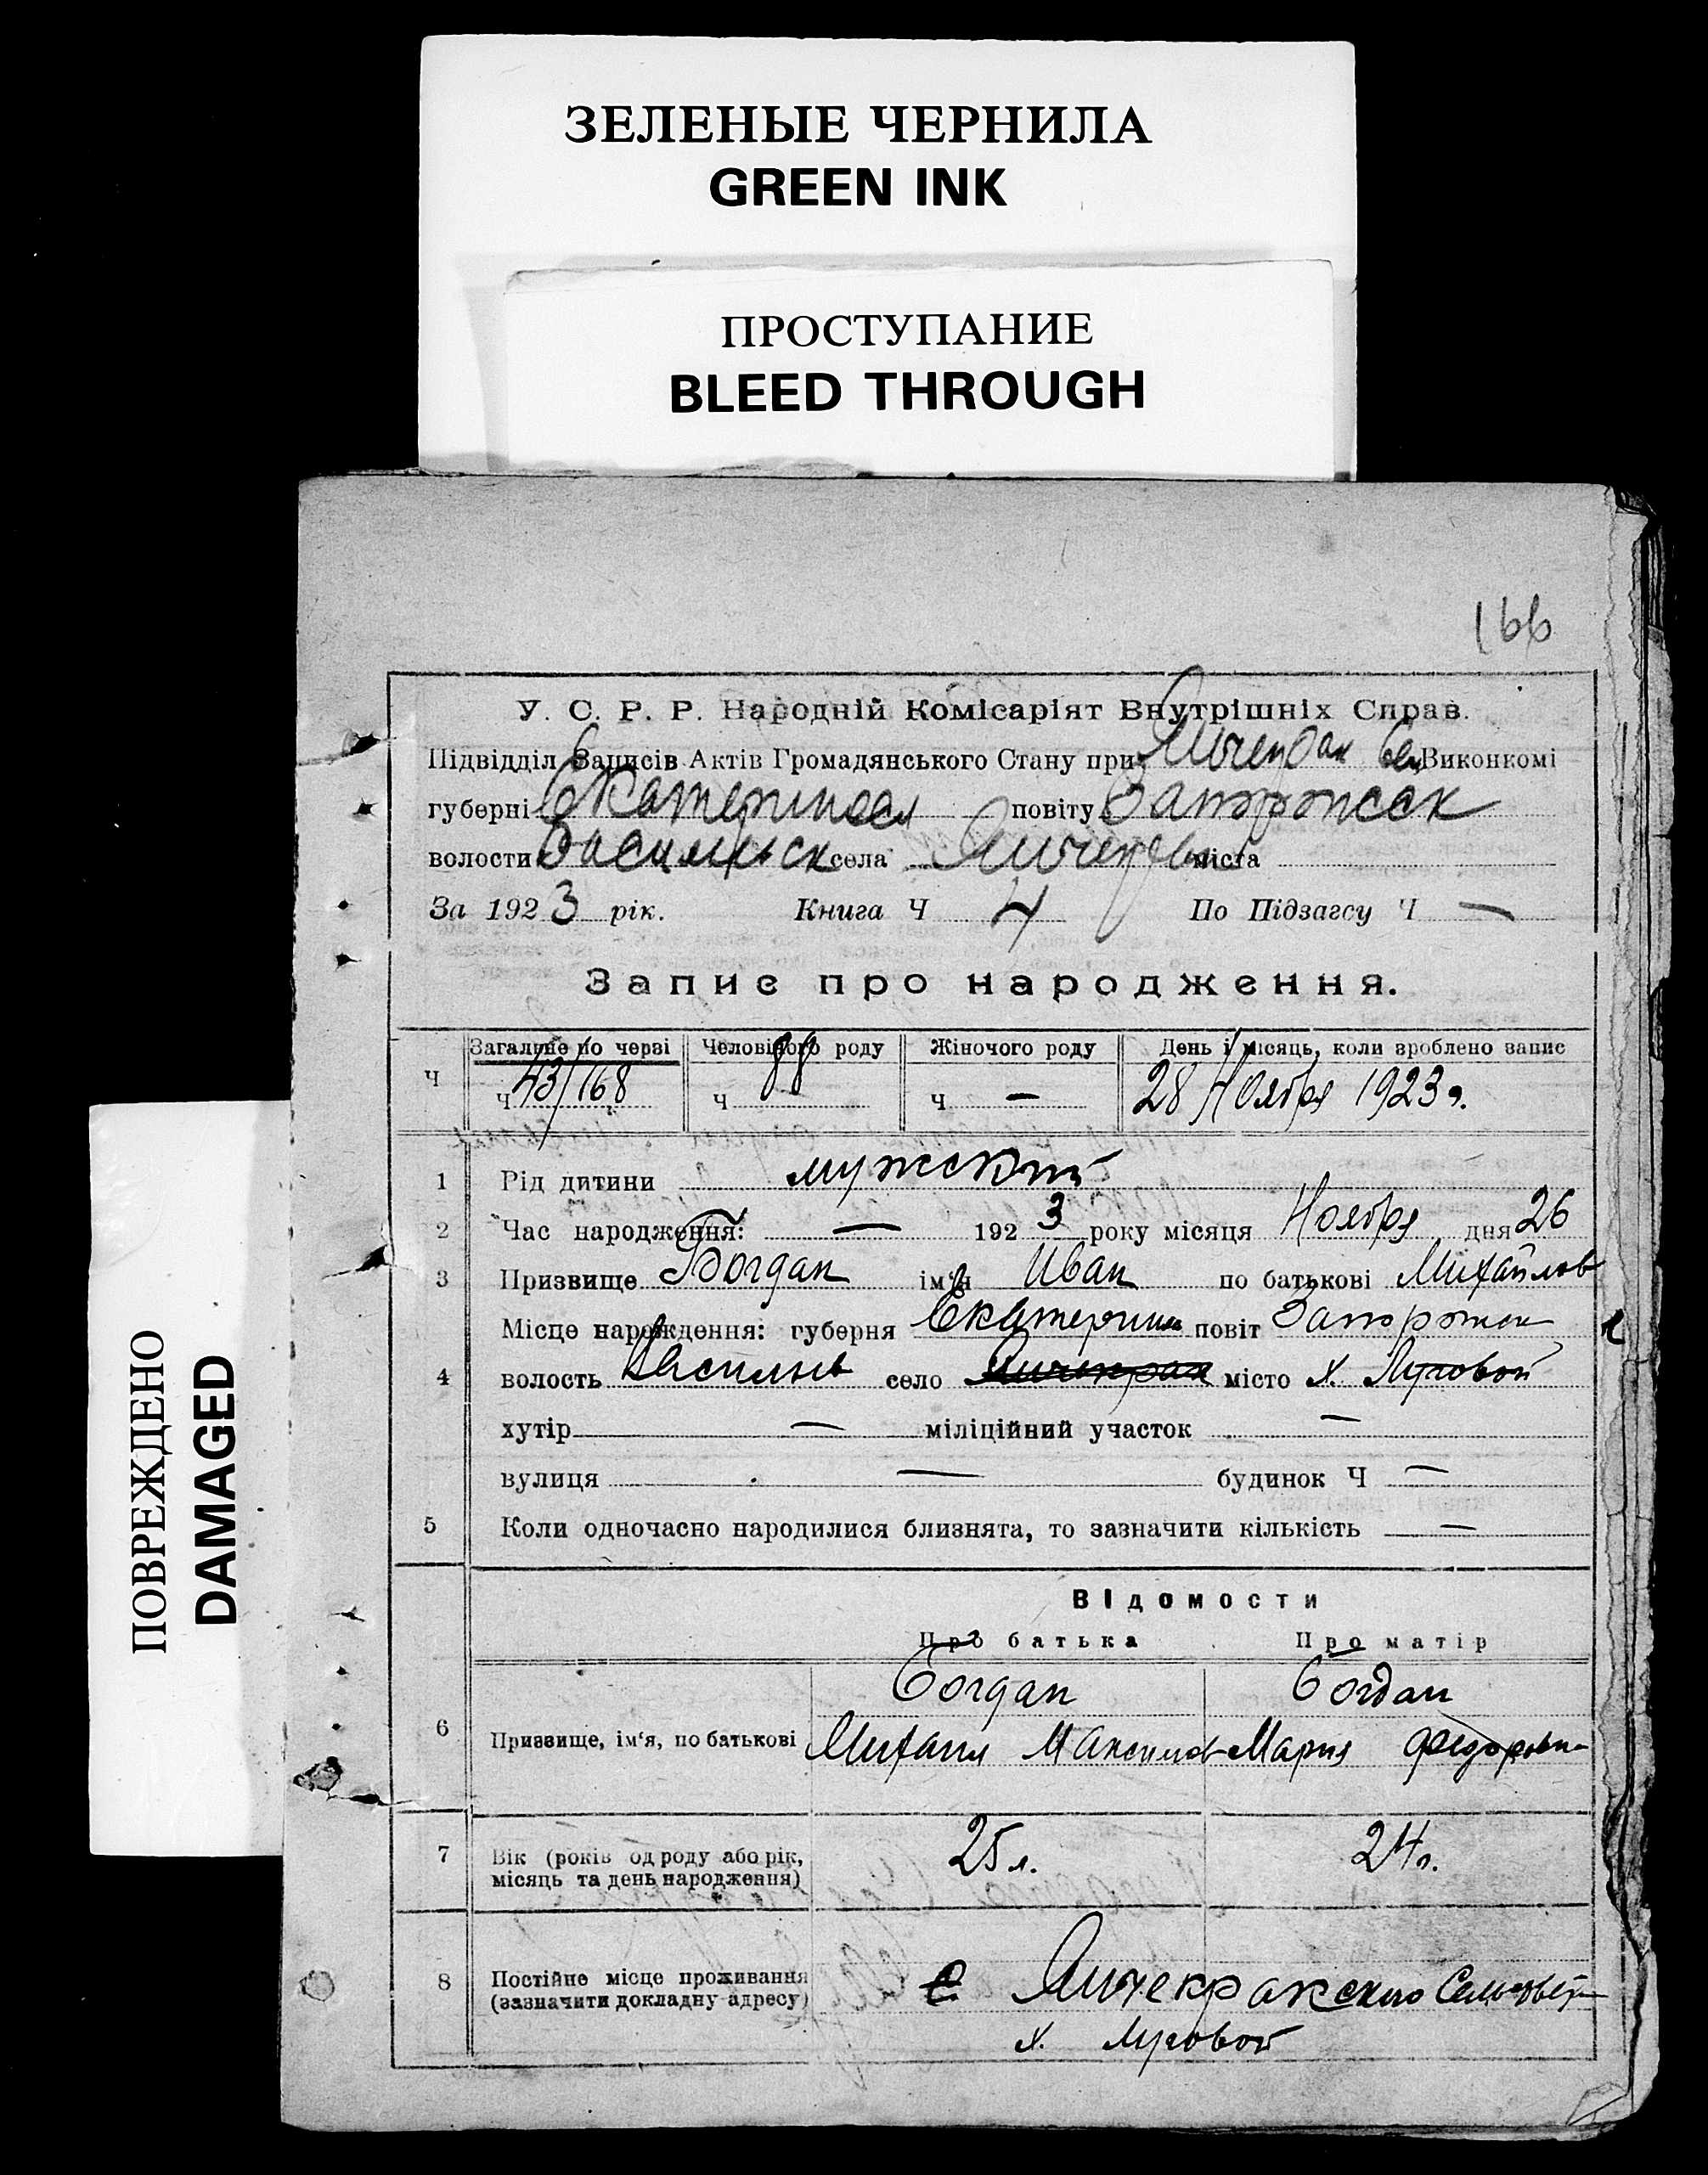 ЗЕЛЕНЫЕ ЧЕРНИЛА
GREEN INK
ПРОСТУПАНИЕ
BLEED THROUGH
ПОВРЕЖДЕНО
DAMAGED
166
У. С. Р. Р. Народній Комісаріят Внутрішніх Справ.
Підвідділ Записів Актів Громадянського Стану при Виконкомі
губерні Екатериносл повіту Запорожск
волости Васильевск села міста
За 1923 рік. Книга Ч 4 По Підзагсу Ч —
Запис про народження.
Ч Загальне по черзі Ч 43/168 Человічого роду Ч 88 Жіночого роду Ч — День і місяць, коли зроблено запис 28 Ноября 1923 г.
1 Рід дитини мужской
2 Час народження: — 1923 року місяця Ноября дня 26
3 Призвище Богдан ім‘я Иван по батькові Михайлов
Місце народження: губерня Екатерин повіт Запорожск
4 волость Васильев село місто х. Луговой
хутір — міліційний участок —
вулиця — будинок Ч —
5 Коли одночасно народилися близнята, то зазначити кількість —
Відомости
Про батька Про матір
Богдан Богдан
6 Призвище, ім‘я, по батькові Михаил Максимов Мария Федоровн
7 Вік (років од роду або рік, місяць та день народження) 25 л. 24 л.
8 Постійне місце проживання (зазначити докладну адресу) Янчекракского Сельсовета
х. Луговой